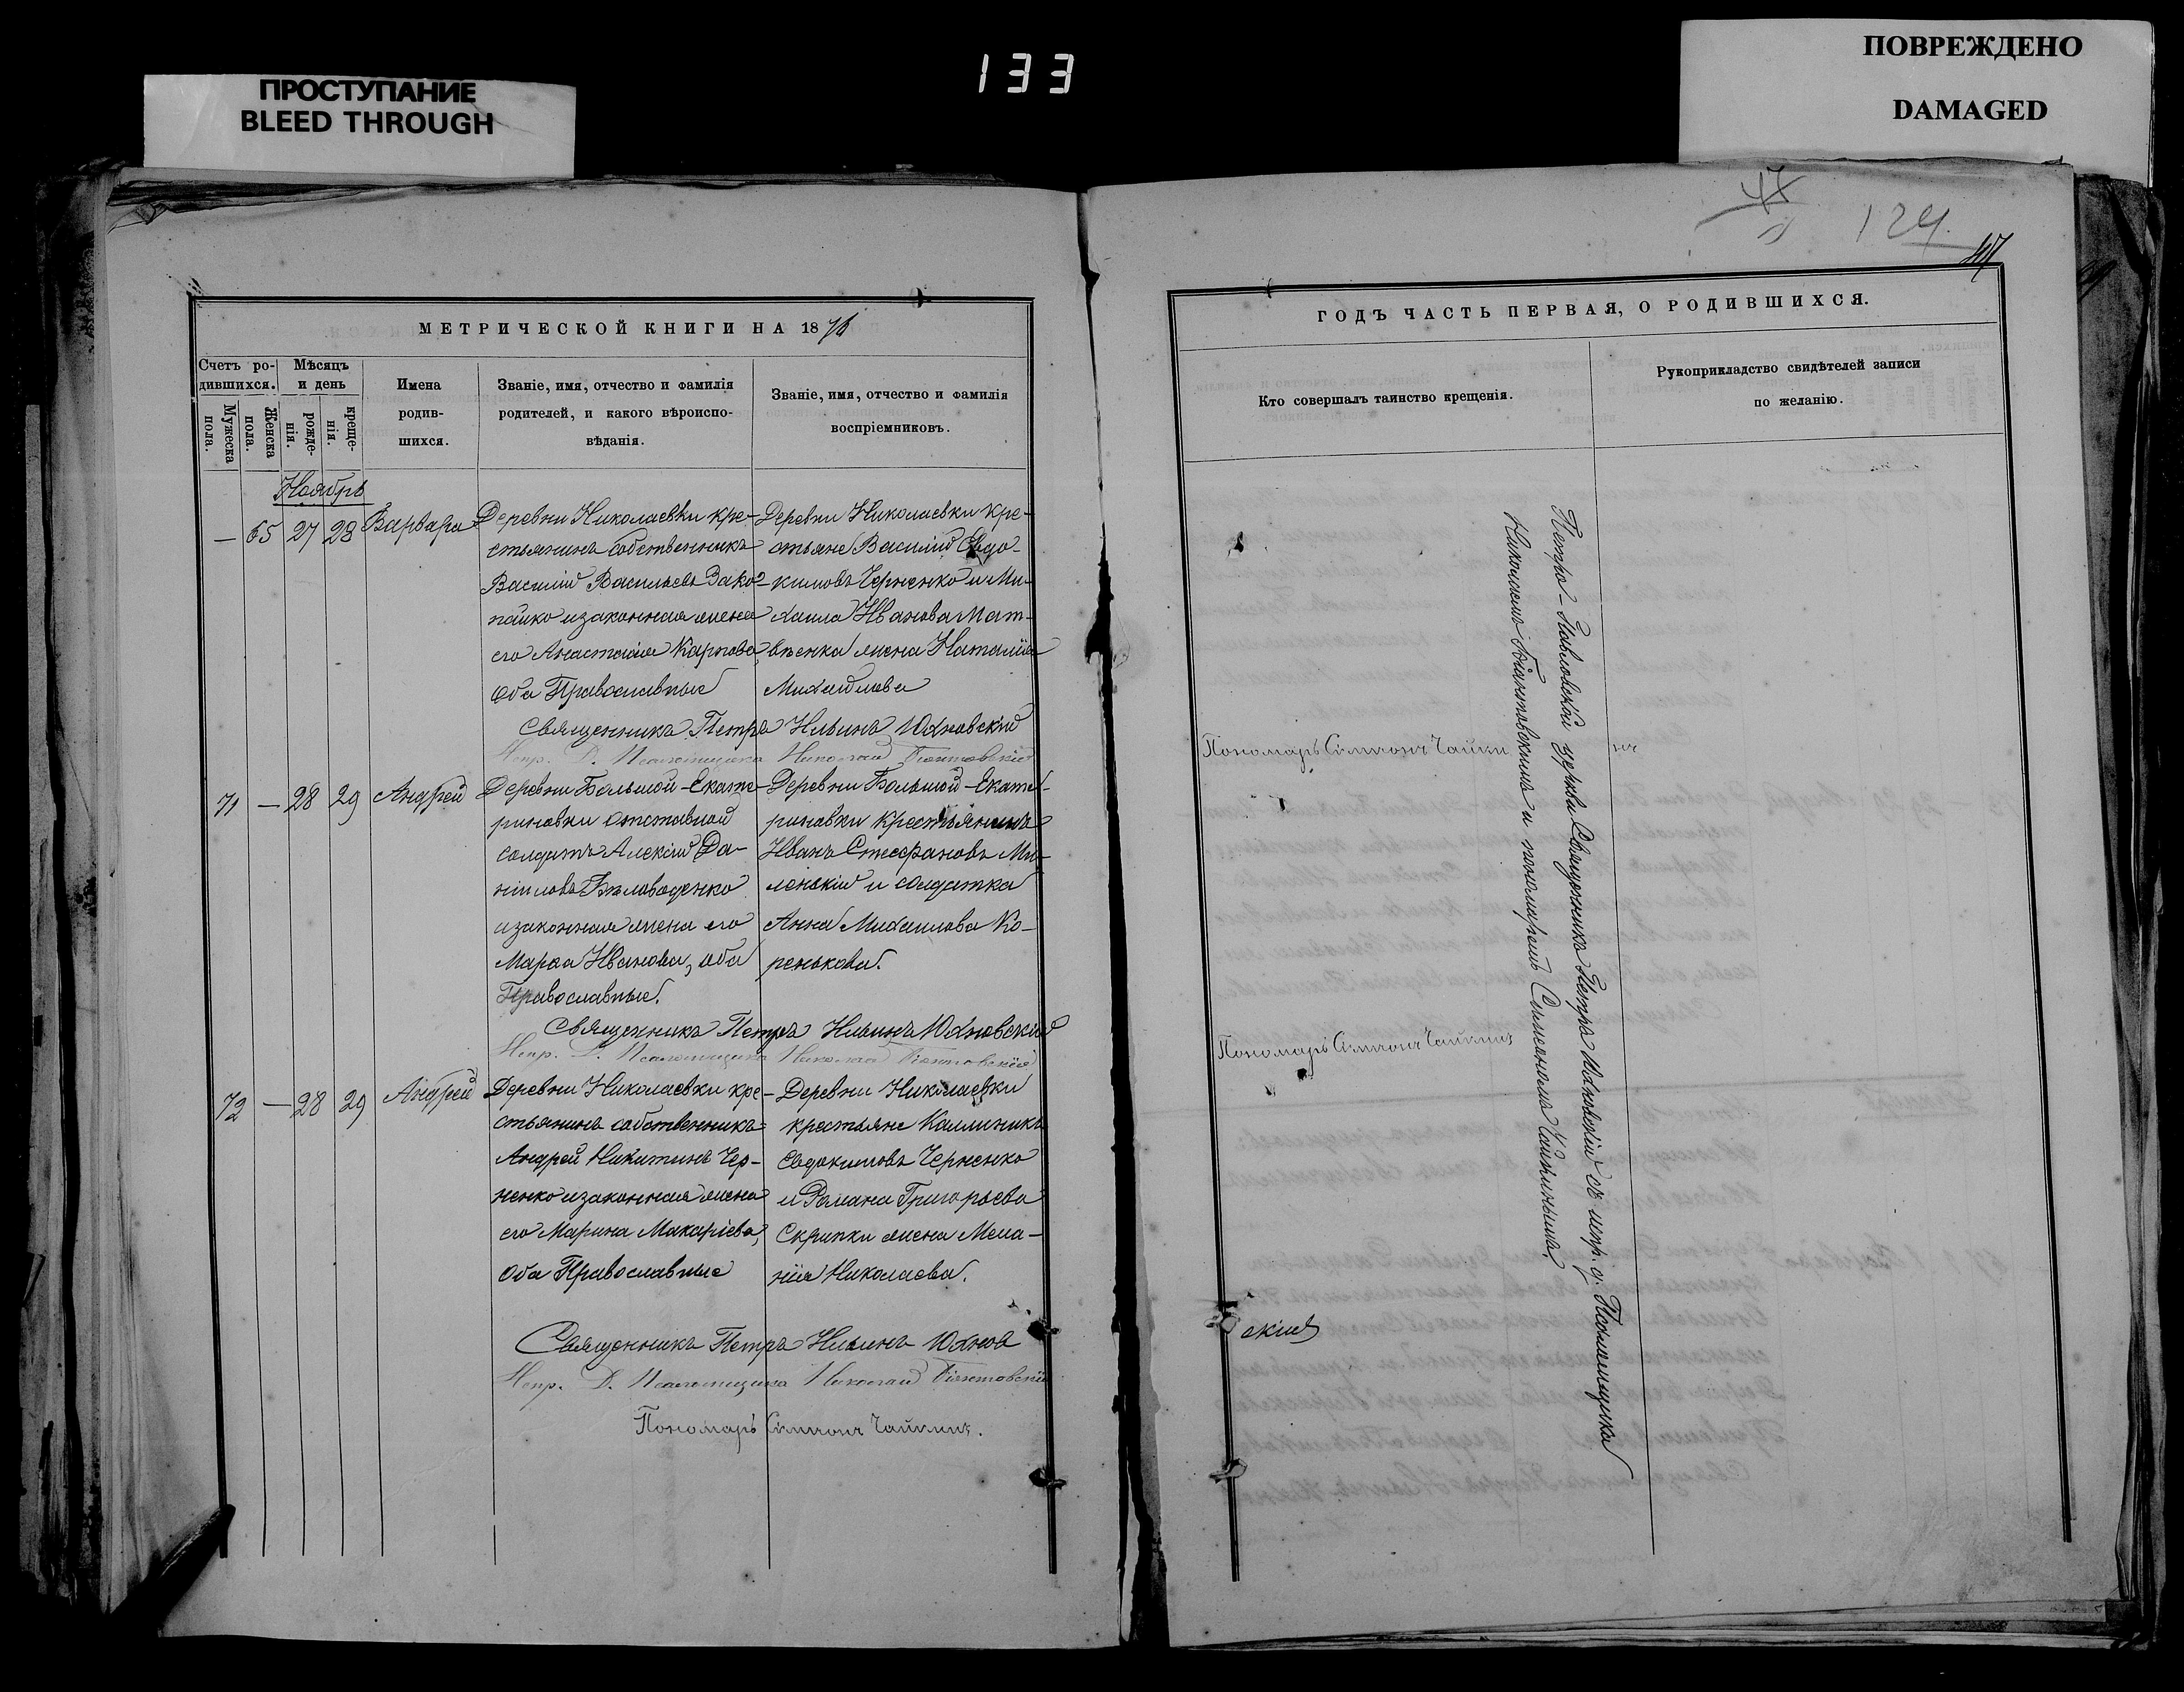 133
ПРОСТУПАНИЕ
BLEED THROUGH
ПОВРЕЖДЕНО
DAMAGED
47
124.
47
МЕТРИЧЕСКОЙ КНИГИ НА 1876
Счетъ ро-
дившихся.
Мужеска
пола.
Женска
пола.
Мѣсяцъ
и день
рожде-
нія.
креще-
нія.
Имена
родив-
шихся.
Званіе, имя, отчество и фамилія
родителей, и какого вѣроиспо-
вѣданія.
Званіе, имя, отчество и фамилія
воспріемниковъ.
Ноябрь
— 65 27 28 Варвара
Деревни Николаевки кре-
стьянинъ собственникъ
Василій Васильевъ Зако-
пайко и законная жена
его Анастасія Карпова,
оба Православные
Деревни Николаевки кре-
стьяне Василій Евдо-
кимовъ Черненко и Ми-
хаила Иванова Мат-
вѣенка жена Наталія
Михайлова
Священникъ Петръ Ильинъ Юхновскій
Испр. д. Псаломщика Николай Піонтовскій
71 — 28 29 Андрей
Деревни Большой-Екате-
риновки отставной
солдатъ Алексій Да-
ніиловъ Бѣловоденко
и законная жена его
Марѳа Иванова, оба
Православные.
Деревни Большой-Екате-
риновки крестьянинъ
Иванъ Стефановъ Ми-
ленькій и солдатка
Анна Михаилова Ко-
ренькова.
Священникъ Петръ Ильинъ Юхновскій
Испр. д. Псаломщика Николай Піонтовскій
72 — 28 29 Андрей
Деревни Николаевки кре-
стьянинъ собственникъ
Андрей Никитинъ Чер-
ненко и законная жена
его Марина Макаріева,
Оба Православные
Деревни Николаевки
крестьяне Каллиникъ
Евдокимовъ Черненко
и Романа Григорьева
Скрипки жена Мела-
нія Николаева.
Священникъ Петръ Ильинъ Юхнов
Испр. д. Псаломщика Николай Піонтовскій
Пономарь Симеонъ Чайкинъ.
ГОДЪ ЧАСТЬ ПЕРВАЯ, О РОДИВШИХСЯ.
Кто совершалъ таинство крещенія.
Рукоприкладство свидѣтелей записи
по желанію.
Петро-Павловской церкви Священникъ Петръ Юхновскій съ испр. д. Псаломщика
Николаемъ Піонтовскимъ и пономаремъ Симеономъ Чайкинымъ.
Пономарь Симеонъ Чайкинъ
Пономарь Симеонъ Чайкинъ
скій